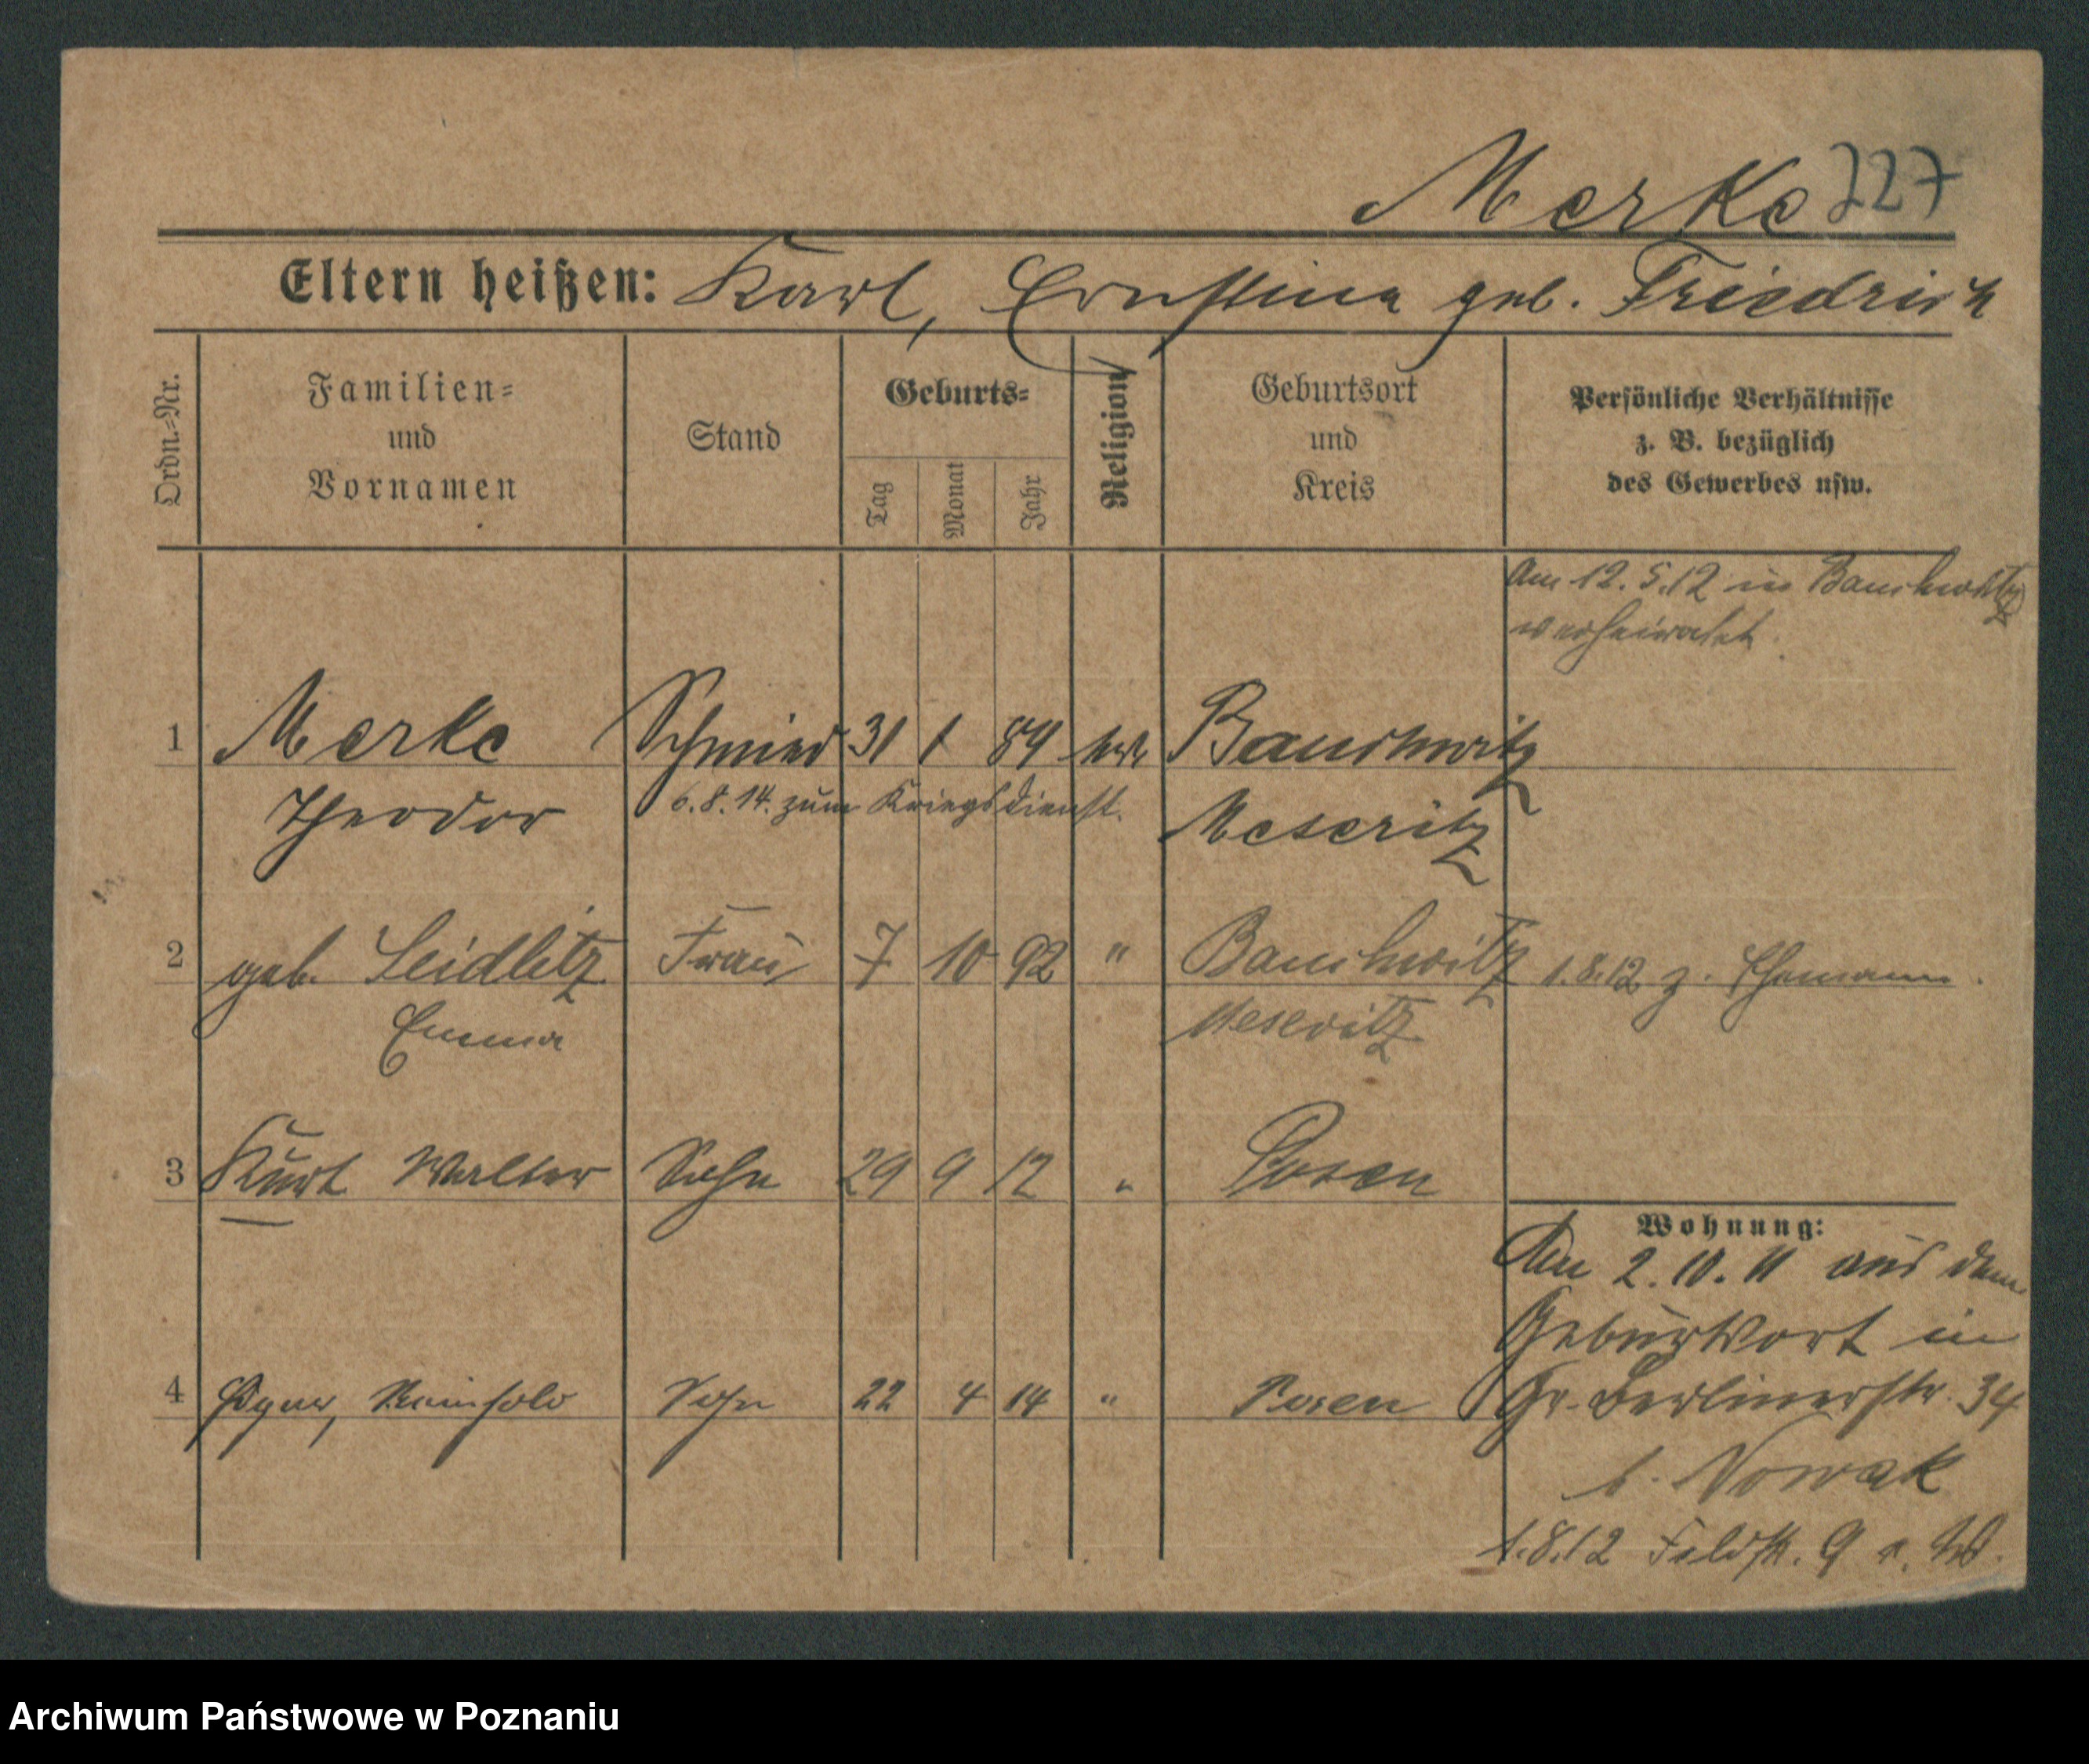 Merke 227
Eltern heißen: Karl, Ernstine geb. Friedrich
Ordn.-Nr.
Familien-
und
Vornamen
Stand
Geburts-
Tag
Monat
Jahr
Religion
Geburtsort
und
Kreis
Persönliche Verhältnisse
z. B. bezüglich
des Gewerbes usw.
Am 12. 5. 12 in Bauchwitz
verheiratet.
1 Merke Schmied 31 1 89 Bauchwitz
Theodor 6. 8. 14. zum Kriegsdienst. Meseritz
2 geb. Seidlitz Frau 7 10 92 " Bauchwitz 1. 8. 12 z. Ehemann.
Emma Meseritz
3 Kurt Walter Sohn 29 9 12 " Posen
Wohnung:
Am 2. 10. 11 aus dem
Geburtsort in
4 Reinhold Sohn 22 4 14 " Posen Gr. Berlinerstr. 34
b. Nowak
1. 8. 12 Feldstr. 9
Archiwum Państwowe w Poznaniu